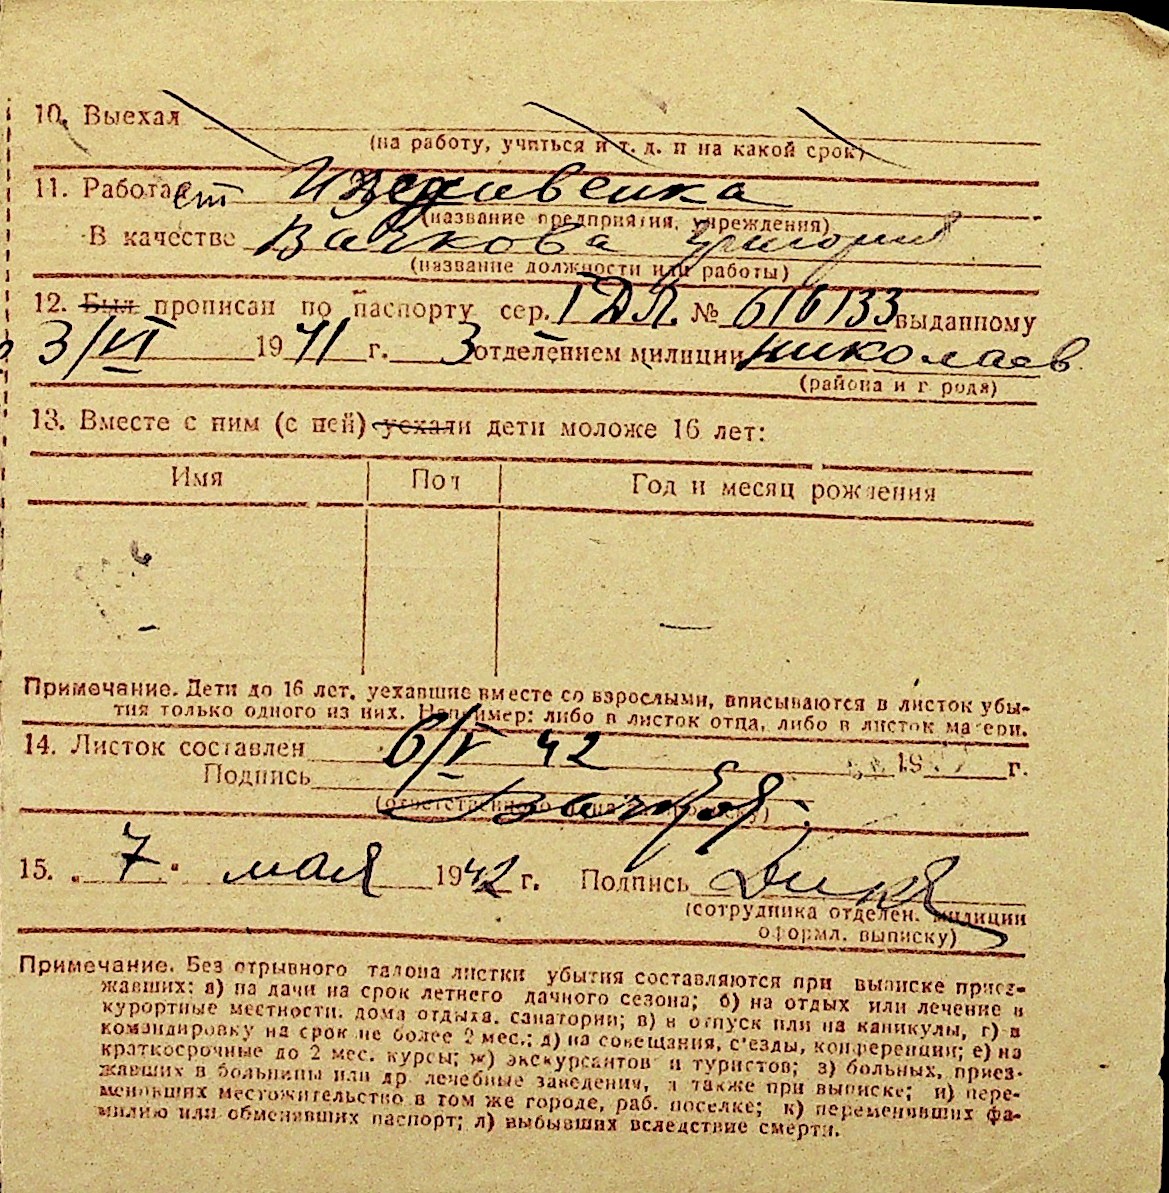 10. Выехал
(на работу, учиться и т. д. и на какой срок)
11. Работает Иждивенка
(название предприятия, учреждения)
В качестве Вачкова Григория
(название должности или работы)
12. Был прописан по паспорту сер. I ДЛ. № 616133 выданному
3/VI 1941 г. 3 отделением милиции Николаев
(района и города)
13. Вместе с ним (с ней) уехали дети моложе 16 лет:
Имя Пол Год и месяц рождения
— —
Примечание. Дети до 16 лет, уехавшие вместе со взрослыми, вписываются в листок убы-
тия только одного из них. Например: либо в листок отца, либо в листок матери.
14. Листок составлен 6/V 42 19 г.
Подпись
15. „ 7 “ мая 1942 г. Подпись
(сотрудника отделен. милиции
оформл. выписку)
Примечание. Без отрывного талона листки убытия составляются при выписке приез-
жавших: а) на дачи на срок летнего дачного сезона; б) на отдых или лечение в
курортные местности, дома отдыха, санатории; в) в отпуск или на каникулы, г) в
командировку на срок не более 2 мес.; д) на совещания, с'езды, конференции; е) на
краткосрочные до 2 мес. курсы; ж) экскурсантов и туристов; з) больных, приез-
жавших в больницы или др. лечебные заведения, а также при выписке; и) пере-
менивших местожительство в том же городе, раб. поселке; к) переменивших фа-
милию или обменявших паспорт; л) выбывших вследствие смерти.